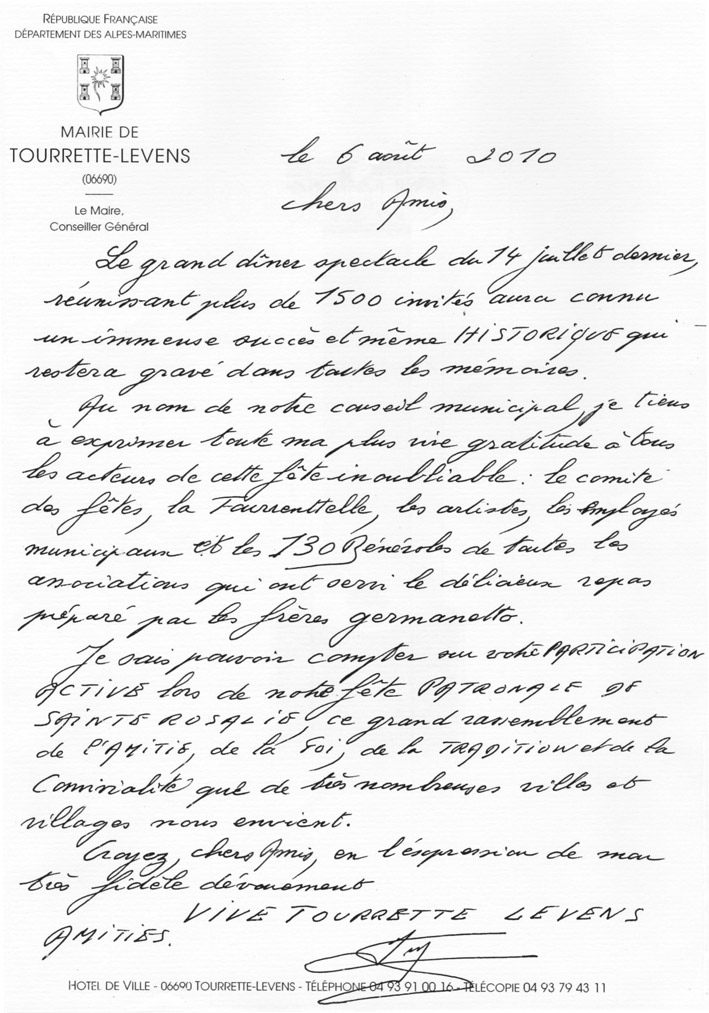 RÉPUBLIQUE FRANÇAISE
DÉPARTEMENT DES ALPES-MARITIMES
MAIRIE DE
TOURRETTE-LEVENS
(06690)
Le Maire,
Conseiller Général
le 6 août 2010
Chers Amis,
Le grand dîner spectacle du 14 juillet dernier,
réunissant plus de 1500 invités aura connu
un immense succès et même HISTORIQUE qui
restera gravé dans toutes les mémoires.
Au nom de notre conseil municipal, je tiens
à exprimer toute ma plus vive gratitude à tous
les acteurs de cette fête inoubliable : le comité
des fêtes, la les artistes, les employés
municipaux et les 130 Bénévoles de toutes les
associations qui ont servi le délicieux repas
préparé par les frères germanetto.
Je sais pouvoir compter sur votre PARTICIPATION
ACTIVE lors de notre fête PATRONALE DE
SAINTE ROSALIE, ce grand rassemblement
de l'AMITIE, de la FOI, de la TRADITION et de la
Convivialité que de très nombreuses villes et
villages nous envient.
Croyez, chers Amis, en l'expression de mon
très fidèle dévouement
VIVE TOURRETTE LEVENS
AMITIES.
HOTEL DE VILLE - 06690 TOURRETTE-LEVENS - TÉLÉPHONE 04 93 91 00 16 - TÉLÉCOPIE 04 93 79 43 11